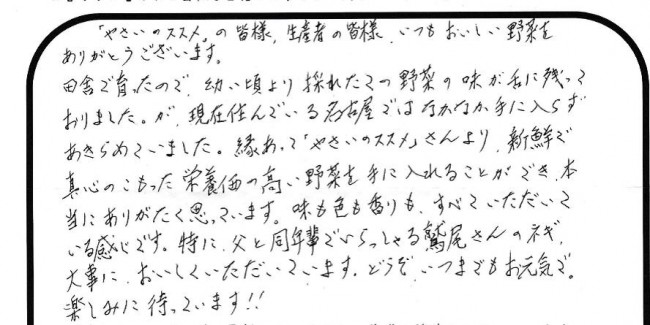 「やさいのススメ」の皆様、生産者の皆様、いつもおいしい野菜を
ありがとうございます。
田舎で育ったので、幼い頃より採れたての野菜の味が舌に残って
おりました。が、現在住んでいる名古屋ではなかなか手に入らず
あきらめていました。縁あって「やさいのススメ」さんより、新鮮で
真心のこもった栄養価の高い野菜を手に入れることができ、本
当にありがたく思っています。味も色も香りも、すべていただいて
いる感じです。特に、父と同年輩でいらっしゃる鷲尾さんのネギ、
大事に、おいしくいただいています。どうぞ、いつまでもお元気で。
楽しみに待っています!!